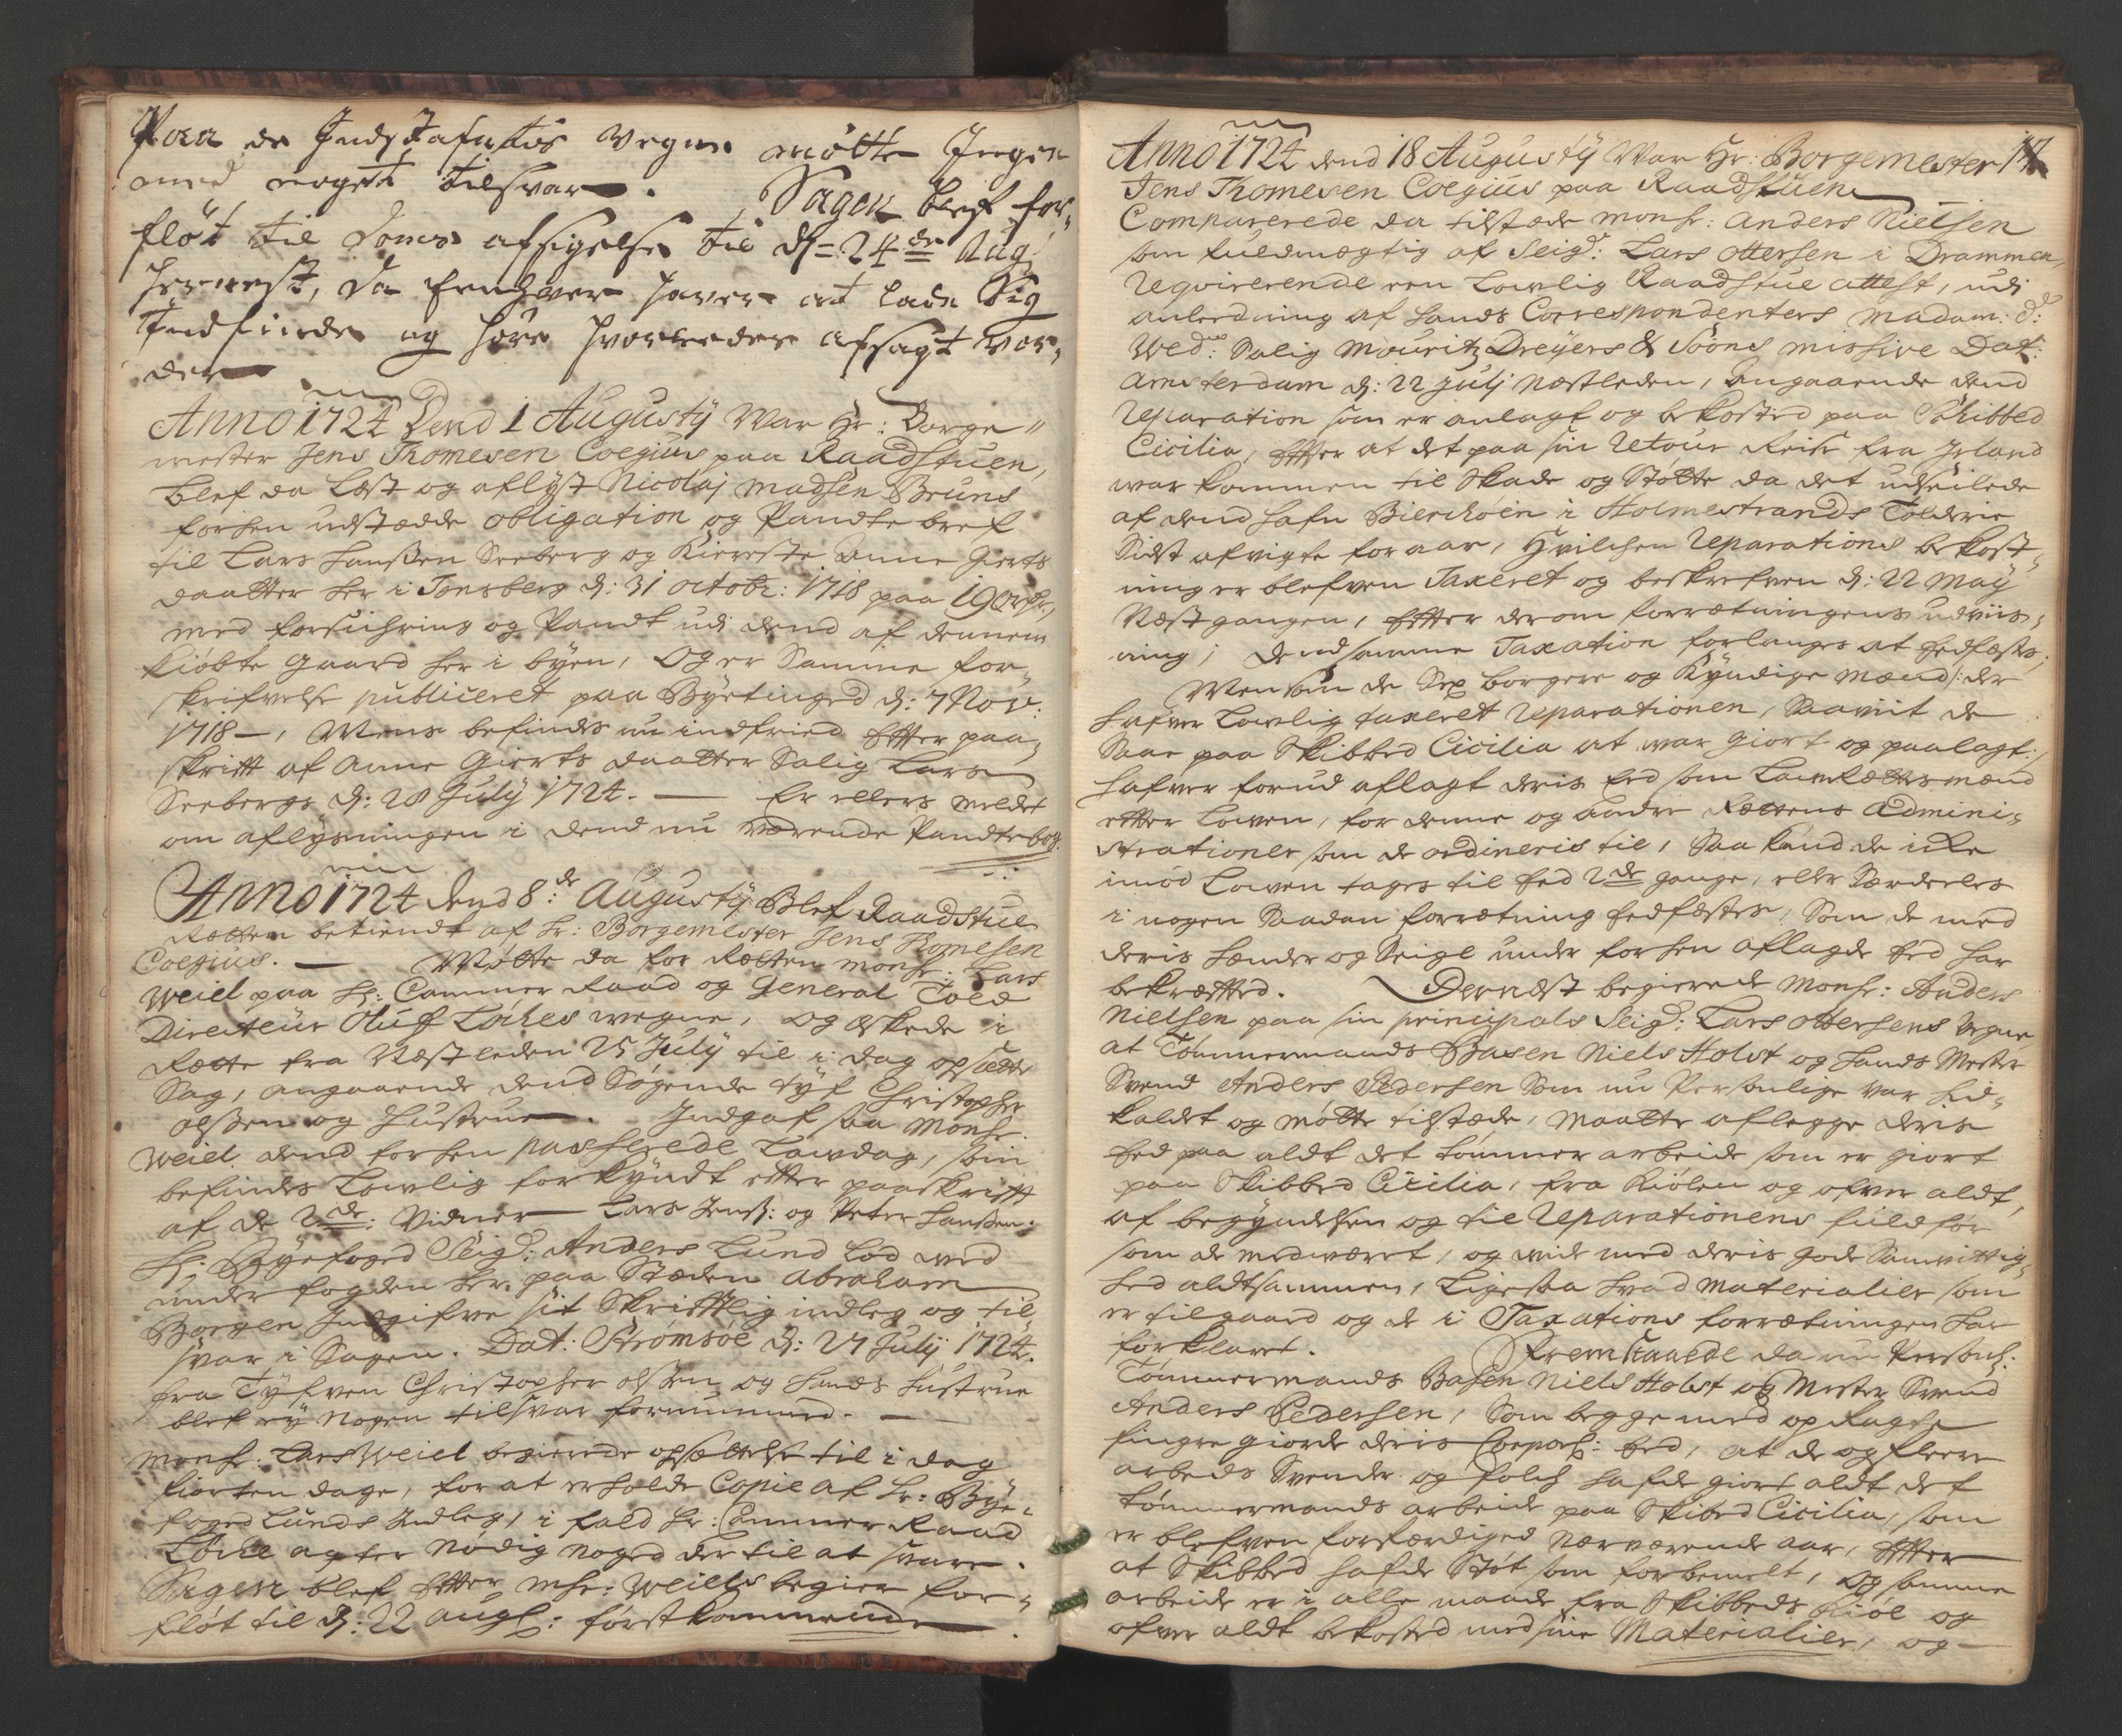 Paa de Indstefntes vegne mötte Ingen
med noget tilsvar. Sagen blef for¬
flöt til Doms afsigelse til d: 24de Aug
hernest, da enhver haver at lade Sig
Indfinde og høre hvorledes afsagt vor¬
der
Anno 1724 Dend 1 Augustij War Hr: Borge¬
mester Jens Thomesen Coegius paa Raadstuen,
blef da Læst og aflyst Nicolaj Madsen Bruns
forhen udstædde obligation og Pandte bref
til Lars Hanssen Seeberg og Kiereste Anne Gierts
daatter her i Tonsberg d: 31 octobr: 1718 paa 190 rdr,
med forsichring og Pandt udi dend af dennem
kiøbte gaard her i byen, Og er Samme for¬
skrifvelse publiceret paa Byetinged d: 7 Nov:
1718 —, Mens befindes nu indfried Efter paa¬
skrifft af Anne Gierts daatter Salig Lars
Seebergs d: 28 July 1724. — Er ellers meldet
om aflysningen i dend nu værende Pandtebog.
Anno 1724 dend 8de Augustij Blef Raadstue
Rætten betiendt af Hr: Borgemester Jens Thomesen
Coegius. — Mötte da for Rætten Monsr: Lars
Weiel paa Hr: Cammer Raad og General Told
Directeur Oluf Lockes wegne, og æskede i
Rætte fra Næstleden 25 July til i dag opsatte
Sag, angaaende dend Søgende tyf Christopher
olssen og Hustrue. Indgaf saa Monsr.
Weiel dend forhen passerede Lawdag, som
befindes Lowlig forkyndt efter paaskrifft
af de 2de: Vidner Lars Jenss: og Peter Hanssen.
Hr: Byefoged Seigr: Anders Lund lod ved
underfogden her paa Stæden Abraham
Borgen Indgifve sit Skrifftlig indleg og til¬
svar i Sagen. Dat: Strømsøe d: 27 July 1724.
fra Tyfven Christopher olssen og hands hustrue
blef ey nogen tilsvar fornummed. —
Monsr: Lars Weiel begierede opsættelse til i dag
fiorten dage, for at erholde Copie af Hr: Bye¬
foged Lunds Indleg, i fald Hr: Cammer Raad
Locke agter nødig noged der til at svare.
Sagen blef Efter Msr: Weiels begier for¬
fløt til d: 22 augs: førstkommende
Anno 1724 dend 18 Augustij War Hr: Borgemester
Jens Thomesen Coegius paa Raadstuen
Comparerede da tilstæde Monsr: Anders Nielsen
som fuldmægtig af Seigr: Lars Ottersen i Drammen,
Reqvirerende een Lowlig Raadstue attest, udi
anledning af hands Correspondenters Madam: d:
Wed: Salig Mouritz Dreyers & Soöns missive Dat:
Amsterdam d: 22 Julj Næstleden, Angaaende dend
Reparation som er anlagt og bekosted paa Skibbed
Cicilia, Efter at det paa sin Retour Reise fra Irland
war kommen til Skade og Støtte da det udseilede
af dend hafn Bierchøen i Holmestrands Tolderie
Sidst afvigte foraar, Hvilchen Reparations bekost¬
ning er blefven Taxeret og beskrefven d: 22 May
Næstgangen, Efter derom forrætningens udviis¬
ning; dend samme Taxation forlanges at Eedfæstes;
Men som de Sex borgere og Kyndige Mænd /: der
hafver Lowlig taxeret Reparationen, Saavit de
Saae paa Skibbed Cicilia at war giort og paalagt:/
hafver forud aflagt deris Eed som Lawrættesmænd
efter Lowen, for denne og andre Rettens Admini¬
strationer som de ordineris til, Saa kand de icke
imod Lowen tages til Eed 2de gange, eller Særdeeles
i nogen Saadan forrætning Eedfæstes, Som de med
deris Hænder og Seigl under forhen aflagde Eed har
bekræfted. Dernæst begierede Monsr: Anders
Nielsen paa sin principals Seigr: Lars Ottersens Vegne
at Tømmermands Basen Niels Holst og hands Mester
Svend Anders Pedersen Som nu Personlige var hid¬
kaldet og møtte tilstæde, maatte aflegge deris
Eed paa aldt det tømmer arbeide som er giort
paa Skibbed Cicilia, fra Kiølen og ofver aldt,
af begyndelsen og til Reparationens fuldför
som de medværet, og wide med deris gode Samvittig¬
hed aldtsammen, Ligesaa hvad Materialier som
er tilgaaed og de i Taxations forrætningen har
forklaret. Fremstaaede da nu Personl:
Tømmermands Basen Niels Holst og Mester Svend
Anders Pedersen, Som begge med opRagte
fingre giorde deris Corporl: Eed, at de og fleere
arbeds Svende og folch hafde giort aldt det
tømmermands arbeide paa Skibed Cicilia, som
er blefven forfærdiged Nærværende aar, Efter
at Skibbed hafde Støt som forbemelt, Og samme
arbeide er i alle maade fra Skibbeds Kiøl og
ofver aldt bekosted med sine Materialier, og